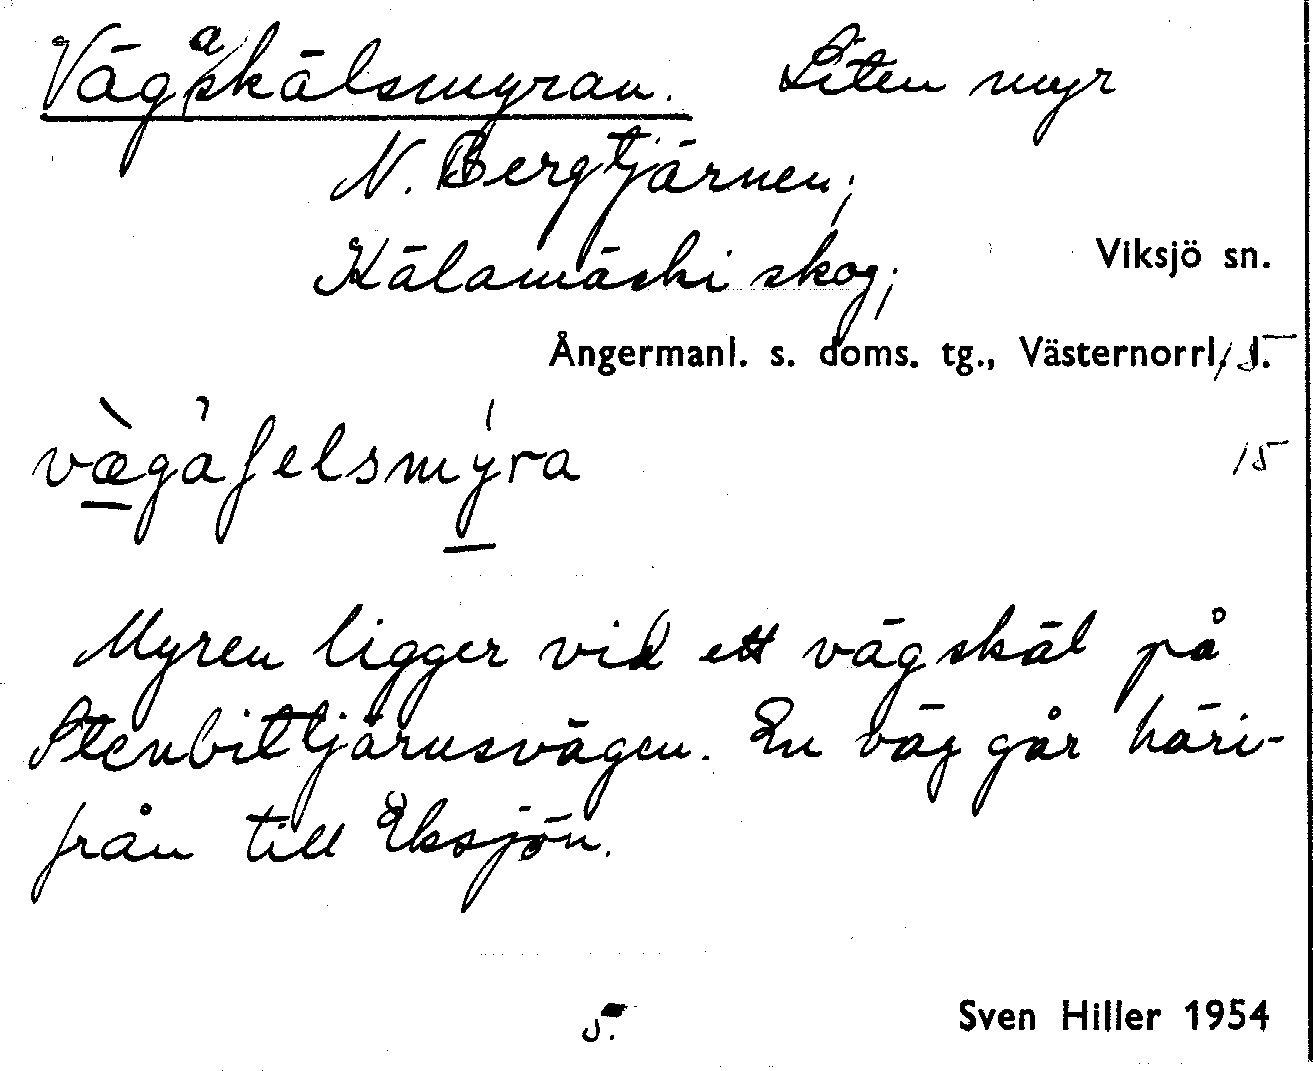 Vägaskälsmyran. Liten myr
N. Bergtjärnen;
Källamäski skog;
Viksjö sn.
Ångermanl. s. doms. tg., Västernorrl. l.
vægaʃelsmyra
15
Myren ligger vid ett vägskäl på
Stenbittjärnsvägen. En väg går häri-
från till Eksjön.
5.
Sven Hiller 1954